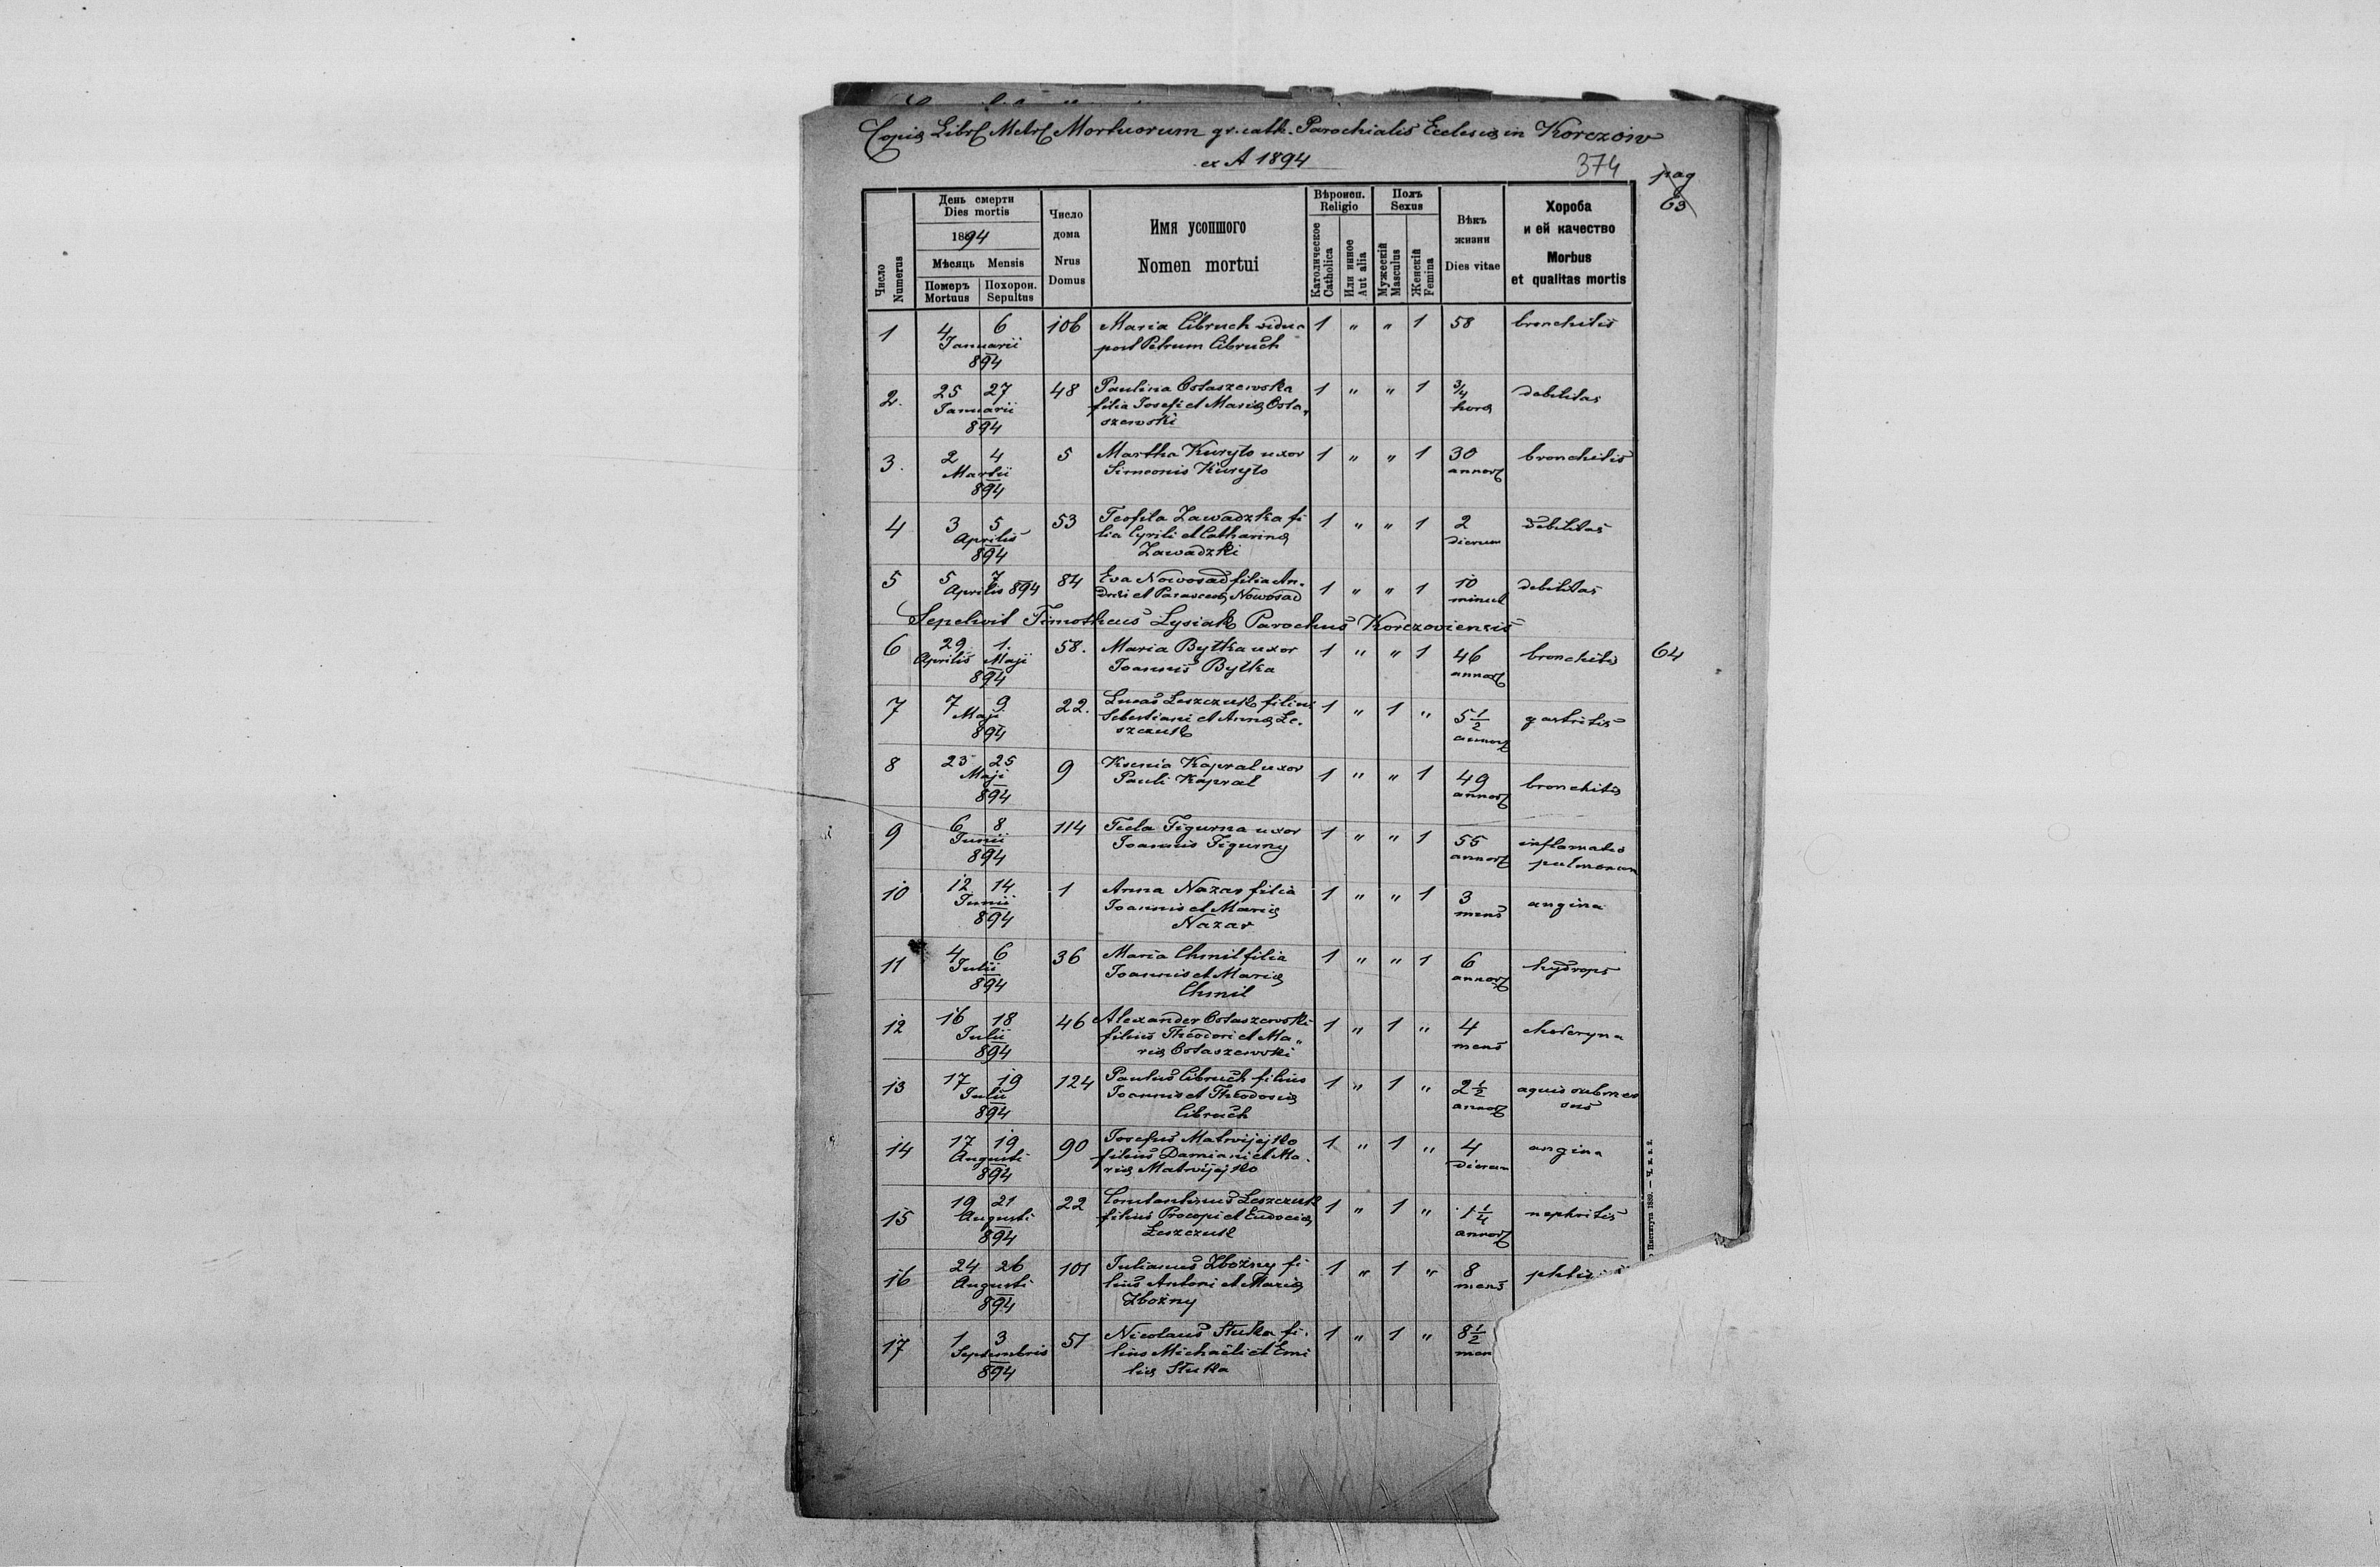 Copia Libr Metr Mortuorum gr. cath. Parochialis Ecclesiæ in Korczów
ex A 1894
374
pag
63
Число
Numerus
День смерти
Dies mortis
1894
Мѣсяць Mensis
Померъ
Mortuus
Похорон.
Sepultus
Число
дома
Nrus
Domus
Имя усопшого
Nomen mortui
Вѣроисп.
Religio
Католическое
Catholica
Или иное
Aut alia
Полъ
Sexus
Мужескій
Masculus
Женскій
Femina
Вѣкъ
жизни
Dies vitae
Хороба
и ей качество
Morbus
et qualitas mortis
1 4 6 106 Maria Cibruch vidua 1 " " 1 58 bronchitis
Januarii post Petrum Cibruch
894
2. 25 27 48 Paulina Ostaszewska 1 " " 1 3/4 debilitas
Januarii filia Josefi et Mariæ Osta„ horæ
894 szewski
3. 2 4 5 Martha Kuryło uxor 1 " " 1 30 bronchitis
Martii Simeonis Kuryło annor
894
4 3 5 53 Teofila Zawadzka fi 1 " " 1 2 debilitas
Aprilis lia Cyrili et Catharinæ dierum
894 Zawadzki
5 5 7 84 Eva Nowosad filia An- 1 " " 1 10 debilitas
Aprilis 894 drei et Parascevæ Nowosad minut
Sepelivit Timotheus Lysiak Parochus Korczoviensis
6 29 1. 58. Maria Bytka uxor 1 " " 1 46 bronchitis 64
Aprilis Maji Joannis Bytka annor
894
7 7 9 22. Lucas Leszczuk filius 1 " 1 " 5 1/2 gastritis
Maji Sebestiani et Annæ Le- annor
894 szczuk
8 23 25 9 Ksenia Kapral uxor 1 " " 1 49 bronchitis
Maji Pauli Kapral annor
894
9 6 8 114 Tecla Figurna uxor 1 " " 1 55 inflamatio
Junii Joannis Figurny annor pulmonum
894
10 12 14 1 Anna Nazar filia 1 " " 1 3 angina
Junii Joannis et Mariæ mens
894 Nazar
11 4 6 36 Maria Chmil filia 1 " " 1 6 hydrops
Julii Joannis et Mariæ annor
894 Chmil
12 16 18 46 Alexander Ostaszewski 1 " 1 " 4 choleryna
Julii filius Theodori et Ma„ mens
894 riæ Ostaszewski
13 17 19 124 Paulus Cibruch filius 1 " 1 " 2 1/2 aquis submer
Julii Joannis et Theodosiæ annor sus
894 Cibruch
14 17 19 90 Josefus Matwijejko 1 " 1 " 4 angina
Augusti filius Damiani et Ma- dierum
894 riæ Matwijejko
15 19 21 22 Constantinus Leszczuk 1 " 1 " 1 1/4 nephritis
Augusti filius Procopi et Eudociæ annor
894 Leszczuk
16 24 26 101 Julianus Zbożny fi 1 " 1 " 8
Augusti lius Antoni et Mariæ mens
894 Zbożny
17 1 3 51 Nicolaus Stuka fi- 1 " 1 " 8 1/2
Septembris lius Michaëli et Emi men
894 liæ Stuka
Института 1889. — Ч. и. в. 2.